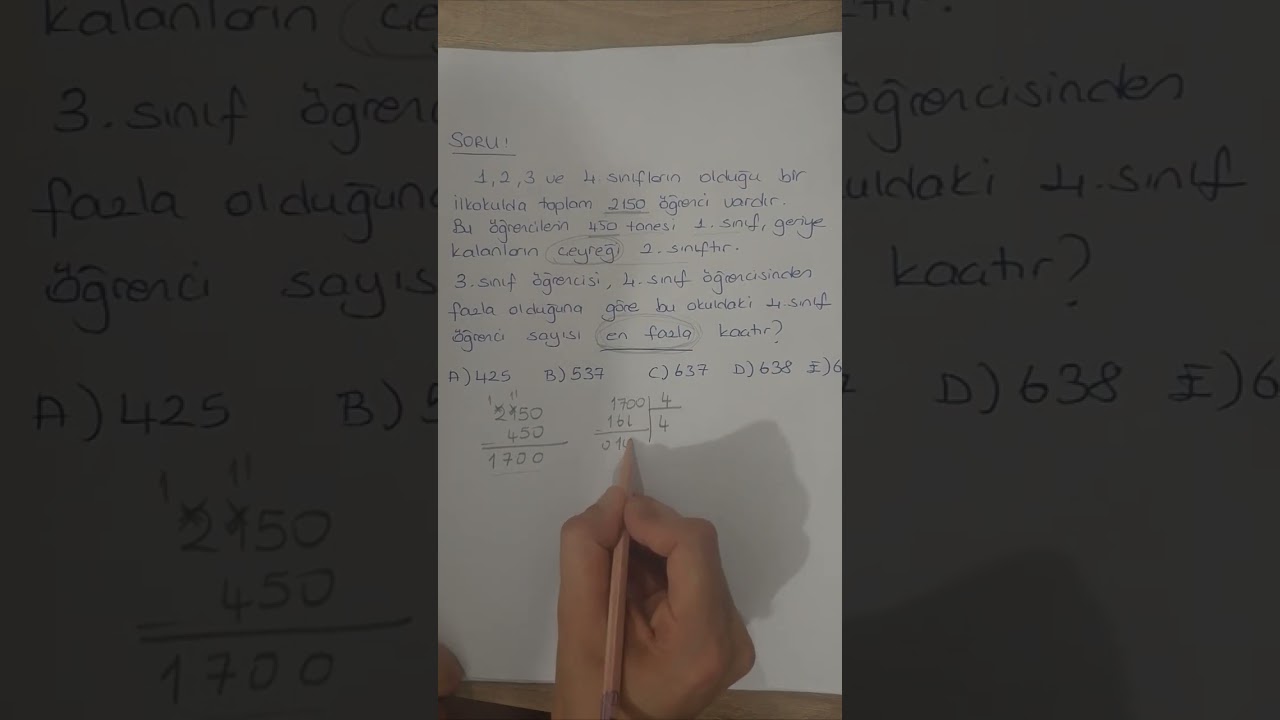 SORU!
1, 2, 3 ve 4. sınıfların olduğu bir
ilkokulda toplam 2150 öğrenci vardır.
Bu öğrencilerin 450 tanesi 1. sınıf, geriye
kalanların çeyreği 2. sınıftır.
3. sınıf öğrencisi, 4. sınıf öğrencisinden
fazla olduğuna göre bu okuldaki 4. sınıf
öğrenci sayısı en fazla kaçtır?
A) 425 B) 537 C) 637 D) 638 E) 6
1 11
2150
- 450
1700
1700 | 4
- 16 | 4
01